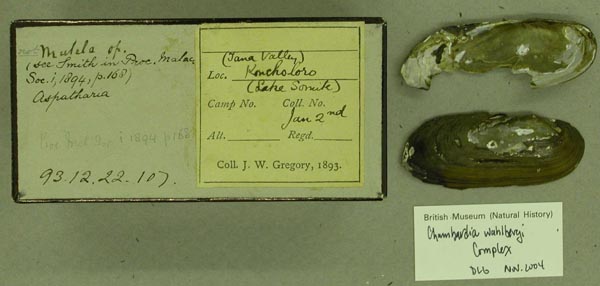 not Mutela sp.
(see Smith in Proc. Malac.
Soc. i, 1894, p. 168)
Aspatharia
Proc Mal Soc. i 1894 p 168
93.12.22.107.
(Tana Valley)
Loc. Koncholoro
(Lake Somite)
Camp No. Coll. No.
Jan 2nd
Alt. Regd.
Coll. J. W. Gregory, 1893.
British Museum (Natural History)
Chambardia wahlbergi
Complex
DLG Nov. 2004